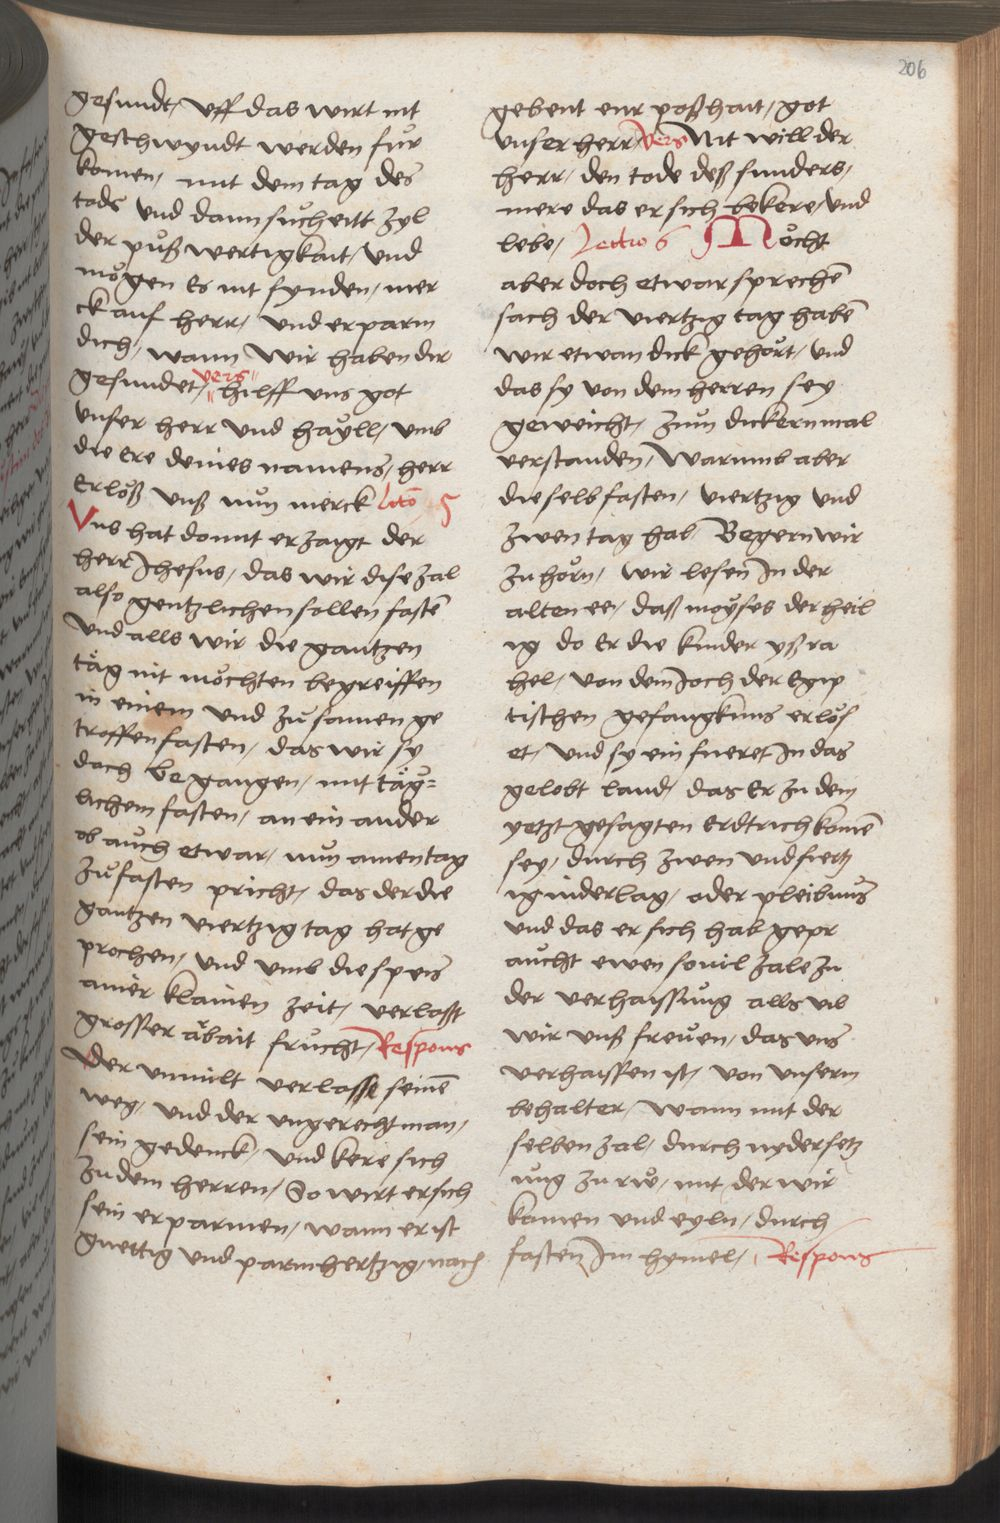 206
gesundt / vff das wirt nit
geschwyndt werden für
komen / mit dem tag des
tods vnd dann sücheitt zyl
der püßwertigkait / vnd
mögen Es nit fynden / mer
ck auf herr / vnd erparm
dich / wann wir haben dir
gesundet / vers hilff vns got
vnser herr vnd hayll / vmb
die Ere deines namens / herr
Erlöß vnß nun merck Lctō 5
Vns hat domit erzaigt der
herr Jhesus / das wir dise zal
also gentzlichen sollen fastē
Vnd alls wir die gantzen
täg nit möchten begreiffen
in einem vnd zü samen ge
troffen fasten / das wir sy
doch begangen / mit täg=
lichem fasten / an ein ander
ob aüch etwar / nün amen tag
zü fasten pricht / das der die
gantzen viertzig tag hat ge
prochen / vnd vmb die speis
ainer klainen zeit / verlasst
grosser arbait frücht / Respons
Der vnmilt verlasse seinē
weg / vnd der vngerecht man /
sein gedenck / vnd kere sich
zu dem herren / So wirt er sich
sein erparmen / wann er ist
guettig vnd parmhertzig / nach
gebent eur poßhait / got
vnser herr / vers Nit will der
herr / den tode deß sunders /
mere das er sich bekere / vnd
lebe / Lectio 6 Möcht
aber doch etwar sprechē
sach der viertzig tag habē
wir etwan dick gehört / vnd
das sy von dem herren sey
geweicht / züm dickern mal
verstanden / Warumb aber
die selb fasten / viertzig vnd
zwen tag hab / Begern wir
zu hörn / wir lesen In der
alten ee / daß moyses der heil
ig do Er die kinder ysra
hel / von dem Joch der Egip
tischen gefangknus erlös
et / vnd sy ein fueret In das
gelobt land / das Er zu dem
yetzt gesagten Erdtrich komē
sey / durch zwen vnd fiertz
ig niderlag / oder pleibnus
vnd das er sich hab gepr
aücht ewen souil zale zu
der verhaissüng alls vil
wir vnß freüen / das vns
verhaissen ist / von vnserm
behalter / wann mit der
selben zal / durch nydersetz
üng zu rw / mit der wir
kamen vnd eyln / durch
fasten Im hymel / Respons